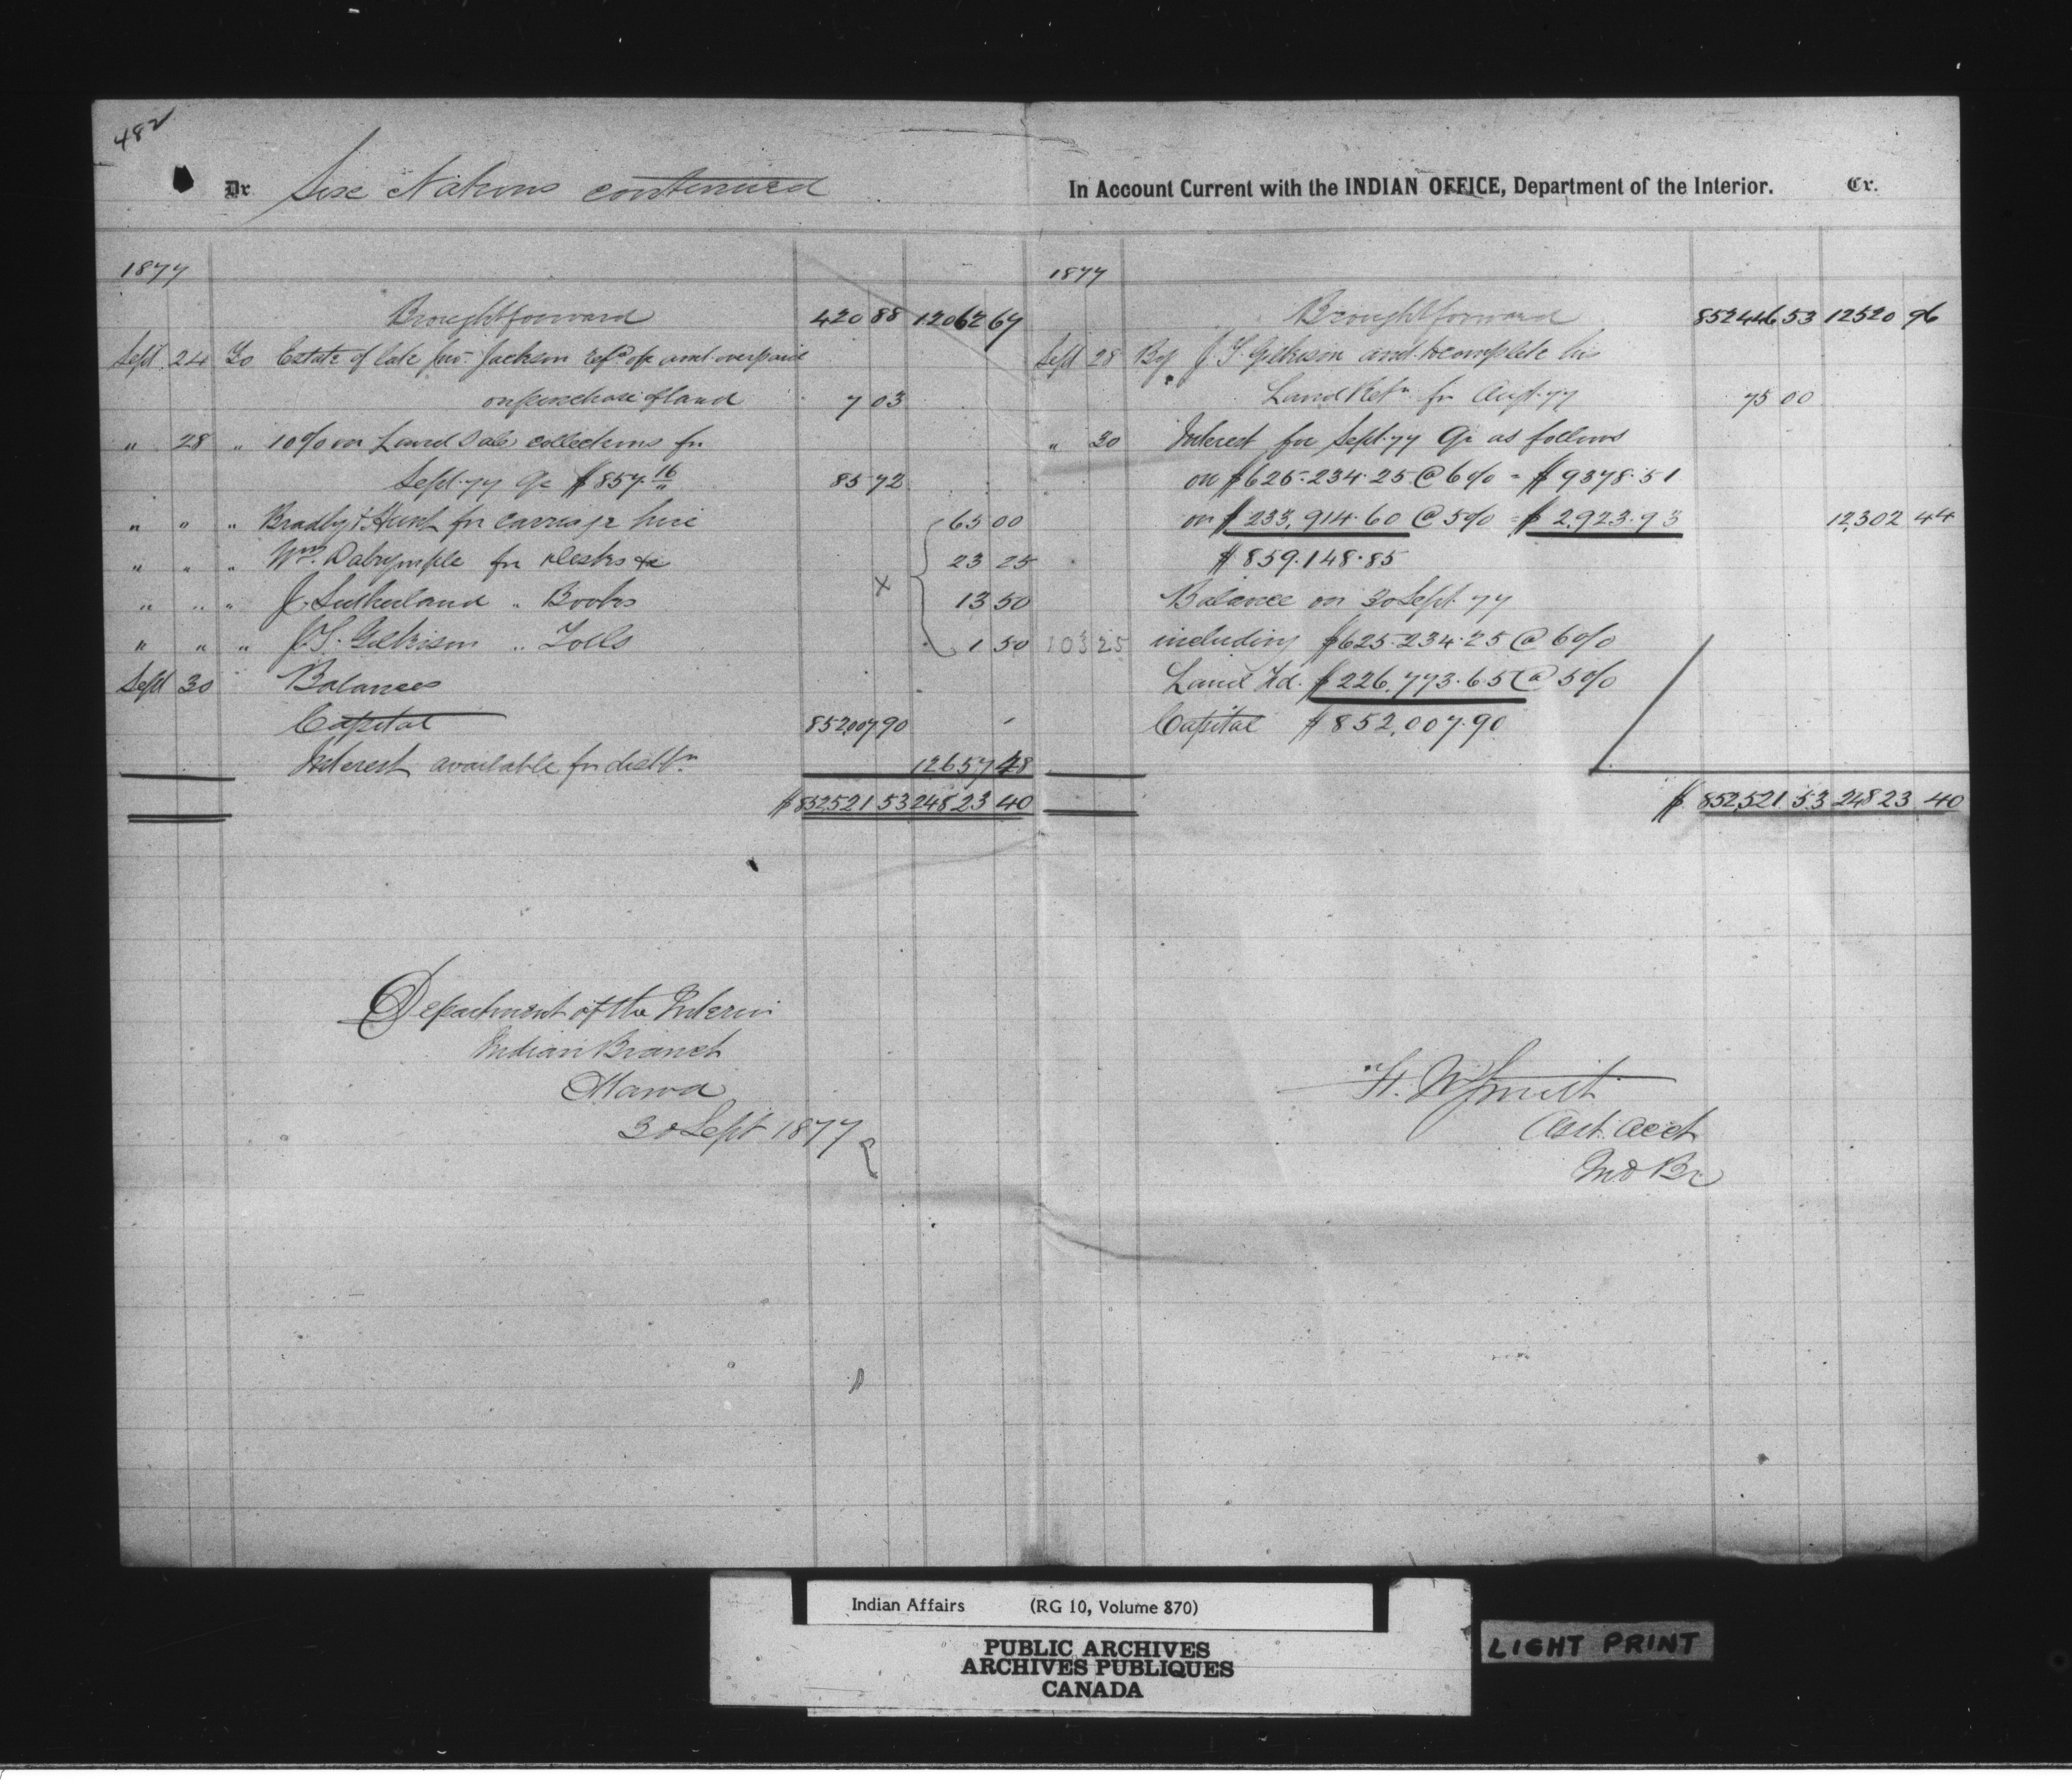 482
Dr Six Nations continued
1877
Brought forward 420 88 12062 67
Sept 24 To Estate of late Jno. Jackson refd of amt overpaid
on purchase of land 7 03
" 28 " 10% on Land Sale collections for
Sept. 77 Qr $857.16 85 72
" " " Bradby & Hunt for carriage hire 65 00
" " " Wm. Dalrymple for desks &c 23 25
" " " J. Sutherland " Books x 13 50
" " " J.T. Gilkison " Tolls 1 50 103 25
Sept 30 Balances
Capital 852,007 90 -
Interest available for distn 12657 48
$ 852521 53 24823 40
Department of the Interior
Indian Branch
Ottawa
30 Sept 1877
In Account Current with the INDIAN OFFICE, Department of the Interior. Cr.
1877
Brought forward 852446 53 12520 96
Sept 28 By J.T. Gilkison amt. to complete his
Land Retn for Aug. 77 75 00
" 30 Interest for Sept. 77 Qr as follows
on $625.234.25 @ 6% = $9378.51
on $233,914.60 @ 5% = $2,923.93 12,302 44
$859.148.85
Balance on 30 Sept. 77
including $625.234.25 @ 6%
Land Fd. $226,773.65 @ 5%
Capital $852,007.90
$ 852,521 53 24823 40
H. W. Smith
Asst. Acct
Ind Br
Indian Affairs (RG 10, Volume 870)
PUBLIC ARCHIVES
ARCHIVES PUBLIQUES
CANADA
LIGHT PRINT